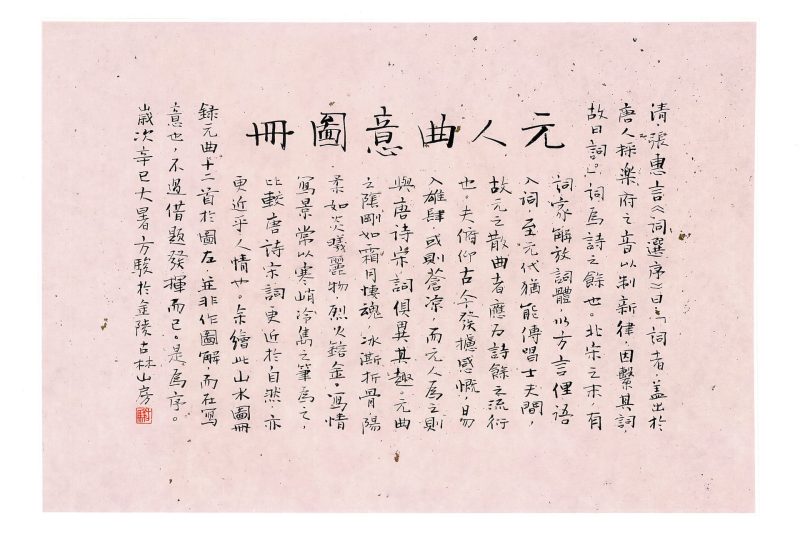 元人曲意圖冊
清·張惠言《詞選序》曰「詞者，蓋出於
唐人採樂府之音以制新律，因繫其詞，
故曰詞。」詞為詩之餘也。北宋之末，有
詞家解放詞體，以方言俚语
入詞，至元代猶能傳唱士夫間，
故元之散曲者應为詩餘之流衍
也。夫俯仰古今發攄感慨，易
入雄肆，或則蒼凉，而元人為之則
與唐诗宋詞俱異其趣。元曲
之陰剛如霜月悽魂，冰澌折骨，陽
柔如炎曦麗物，烈火鎔金。寫情
寫景常以寒峭冷雋之筆為之，
比較唐诗宋詞更近於自然，亦
更近乎人情也。余繪此山水圖冊
録元曲十二首於圖左，並非作圖解，而在寫
意也，不過借題發揮而已。是為序。
歲次辛巳大暑方駿於金陵古林山房